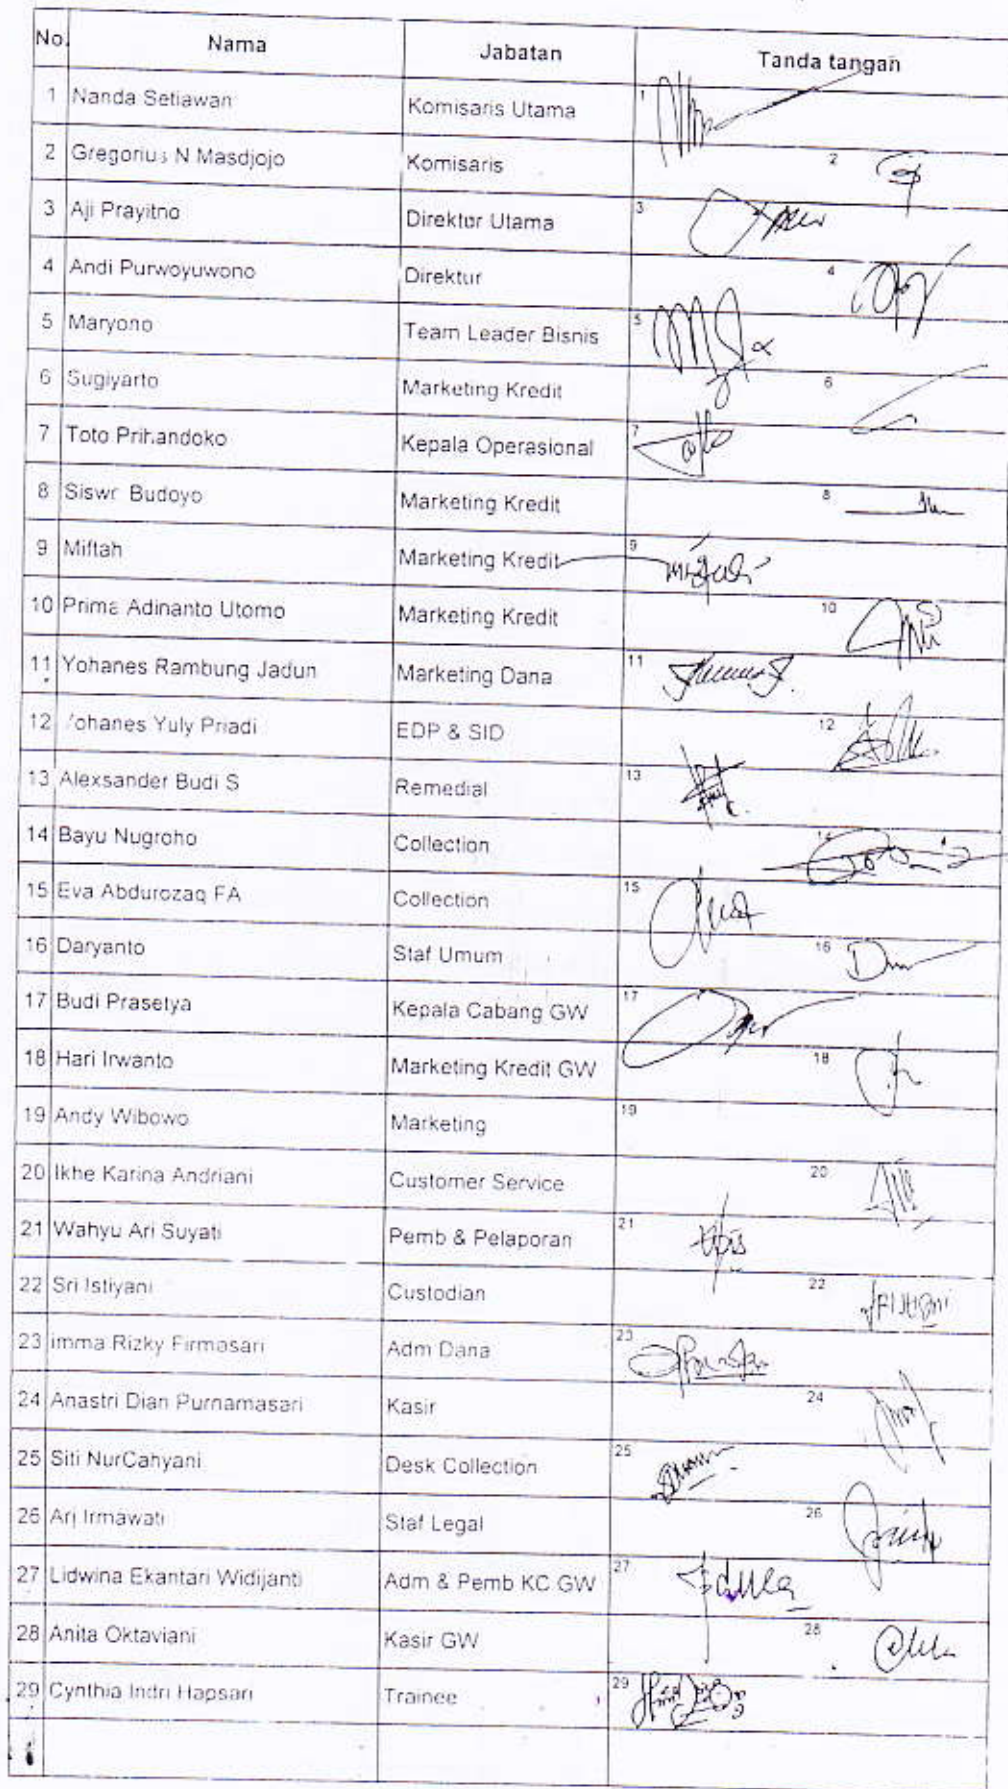 No. Nama Jabatan Tanda tangan
1 Nanda Setiawan Komisaris Utama 1
2 Gregorius N Masdjojo Komisaris 2
3 Aji Prayitno Direktur Utama 3
4 Andi Purwoyuwono Direktur 4
5 Maryono Team Leader Bisnis 5
6 Sugiyarto Marketing Kredit 6
7 Toto Prihandoko Kepala Operasional 7
8 Budoyo Marketing Kredit 8
9 Miftah Marketing Kredit 9
10 Prima Adinanto Utomo Marketing Kredit 10
11 Yohanes Rambung Jadun Marketing Dana 11
12 Yohanes Yuly Priadi EDP & SID 12
13 Alexsander Budi S Remedial 13
14 Bayu Nugroho Collection 14
15 Eva Abdurozaq FA Collection 15
16 Daryanto Staf Umum 16
17 Budi Prasetya Kepala Cabang GW 17
18 Hari Irwanto Marketing Kredit GW 18
19 Andy Wibowo Marketing 19
20 Ikhe Karina Andriani Customer Service 20
21 Wahyu Ari Suyati Pemb & Pelaporan 21
22 Sri Istiyani Custodian 22
23 imma Rizky Firmasari Adm Dana 23
24 Anastri Dian Purnamasari Kasir 24
25 Siti NurCahyani Desk Collection 25
26 Ari Irmawati Staf Legal 26
27 Lidwina Ekantari Widijanti Adm & Pemb KC GW 27
28 Anita Oktaviani Kasir GW 28
29 Cynthia Indri Hapsari Trainee 29